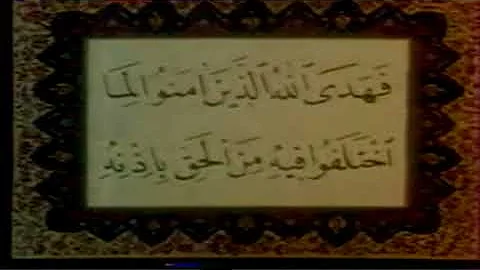 فَهَدَى ٱللَّهُ ٱلَّذِينَ آمَنُوا لِمَا
ٱخْتَلَفُوا فِيهِ مِنَ ٱلْحَقِّ بِإِذْنِهِ